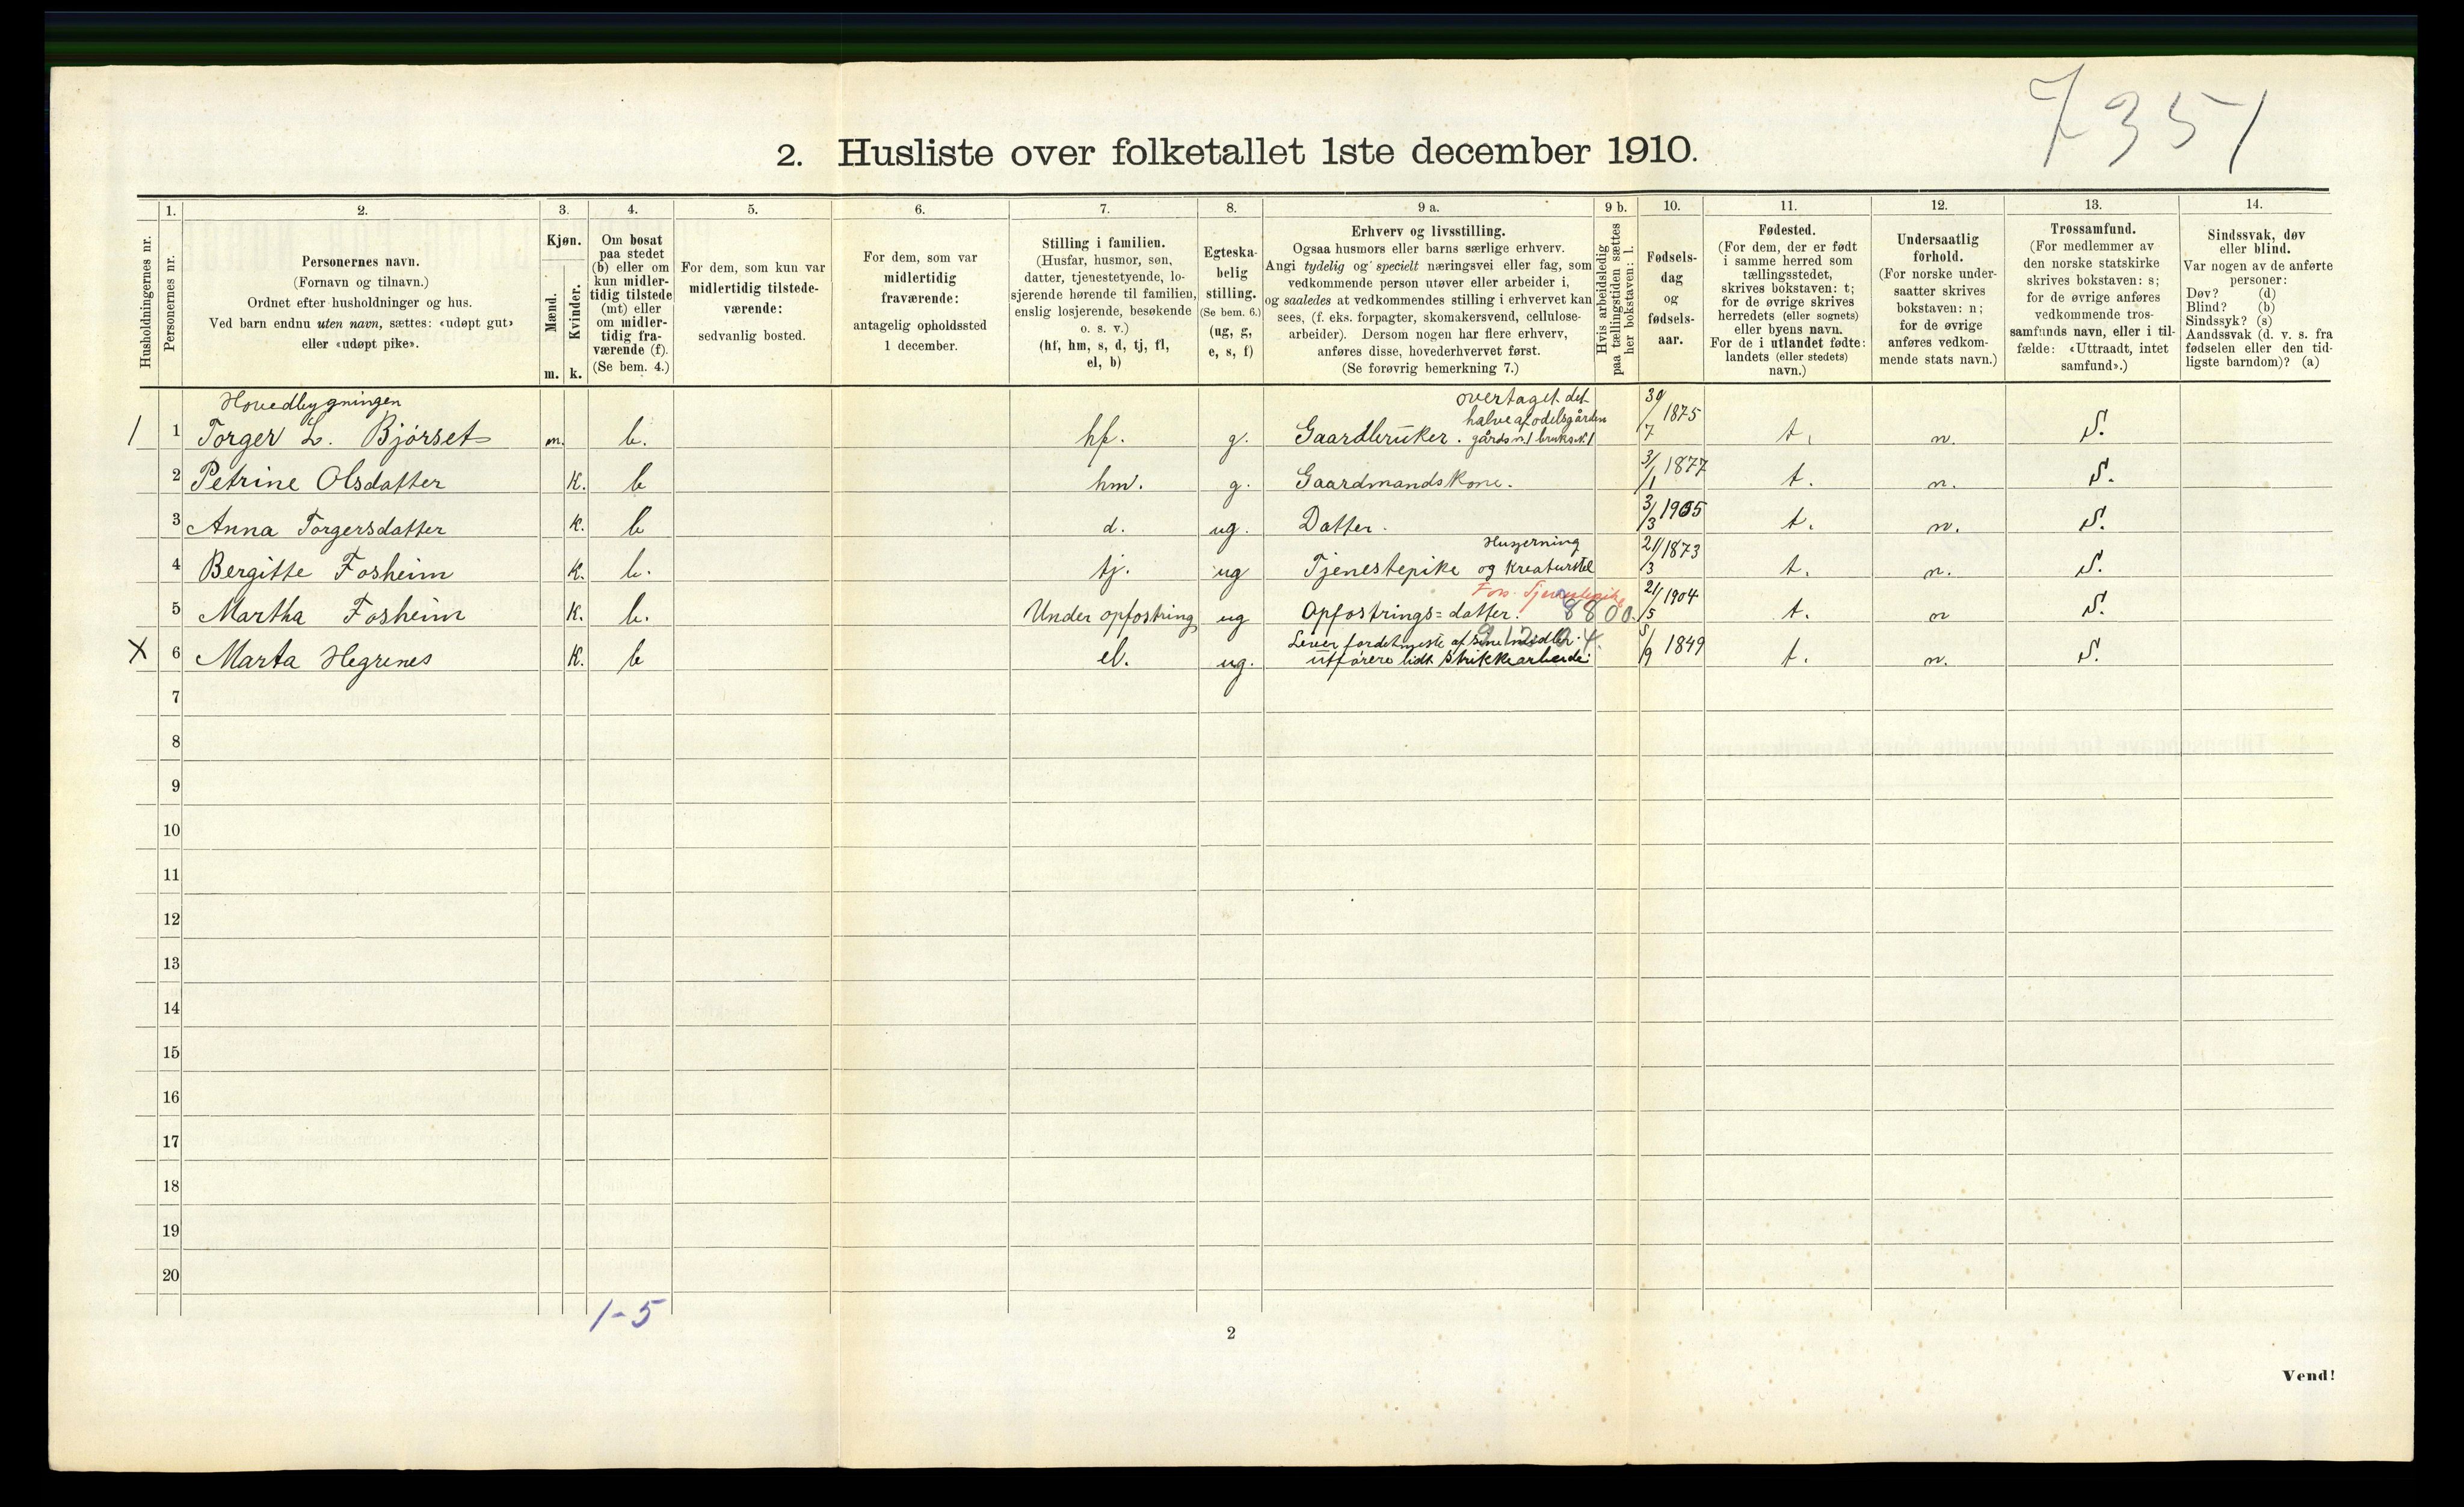 7351
2. Husliste over folketallet 1ste december 1910.
Husholdningernes nr.
1.
Personernes nr.
2.
Personernes navn.
(Fornavn og tilnavn.)
Ordnet efter husholdninger og hus.
Ved barn endnu uten navn, sættes: «udøpt gut»
eller «udøpt pike».
3.
Kjøn.
Mænd.
Kvinder.
m. k.
4.
Om bosat
paa stedet
(b) eller om
kun midler-
tidig tilstede
(mt) eller
om midler-
tidig fra-
værende (f).
(Se bem. 4.)
5.
For dem, som kun var
midlertidig tilstede-
værende:
sedvanlig bosted.
6.
For dem, som var
midlertidig
fraværende:
antagelig opholdssted
1 december.
7.
Stilling i familien.
(Husfar, husmor, søn,
datter, tjenestetyende, lo-
sjerende hørende til familien,
enslig losjerende, besøkende
o. s. v.)
(hf, hm, s, d, tj, fl,
el, b)
8.
Egteska-
belig
stilling.
(Se bem. 6.)
(ug, g,
e, s, f)
9 a.
Erhverv og livsstilling.
Ogsaa husmors eller barns særlige erhverv.
Angi tydelig og specielt næringsvei eller fag, som
vedkommende person utøver eller arbeider i,
og saaledes at vedkommendes stilling i erhvervet kan
sees, (f. eks. forpagter, skomakersvend, cellulose-
arbeider). Dersom nogen har flere erhverv,
anføres disse, hovederhvervet først.
(Se forøvrig bemerkning 7.)
9 b.
Hvis arbeidsledig
paa tællingstiden sættes
her bokstaven: l.
10.
Fødsels-
dag
og
fødsels-
aar.
11.
Fødested.
(For dem, der er født
i samme herred som
tællingsstedet,
skrives bokstaven: t;
for de øvrige skrives
herredets (eller sognets)
eller byens navn.
For de i utlandet fødte:
landets (eller stedets)
navn.)
12.
Undersaatlig
forhold.
(For norske under-
saatter skrives
bokstaven: n;
for de øvrige
anføres vedkom-
mende stats navn.)
13.
Trossamfund.
(For medlemmer av
den norske statskirke
skrives bokstaven: s;
for de øvrige anføres
vedkommende tros-
samfunds navn, eller i til-
fælde: «Uttraadt, intet
samfund».)
14.
Sindssvak, døv
eller blind.
Var nogen av de anførte
personer:
Døv? (d)
Blind? (b)
Sindssyk? (s)
Aandssvak (d. v. s. fra
fødselen eller den tid-
ligste barndom)? (a)
Hovedbygningen
overtaget det
halve af odelsgården
1 1 Torger L. Bjørset m. b. hf. g. Gaardbruker. gårds n. 1 bruks N. 1 30/7 1875 t. n. S.
2 Petrine Olsdatter K. b hm. g. Gaardmandskone. 3/1 1877 t. n. S.
3 Anna Torgersdatter K. b d. ug. Datter. 3/3 1905 t. n. S.
Husgerning
4 Bergitte Fosheim K. b. tj. ug Tjenestepike og Kreaturstel 21/3 1873 t. n. S.
Fors. Tjenestepike
5 Martha Fosheim K. b. Under opfostring ug Opfostrings=datter. 8800. 21/5 1904 t. n S.
Lever fordetmeste af sine midler.
X 6 Marta Hegrenes K. b el. ug. utførere lidt strikkearbeide. 5/9 1849 t. n. S.
7
8
9
10
11
12
13
14
15
16
17
18
19
20
1-5
2
Vend!